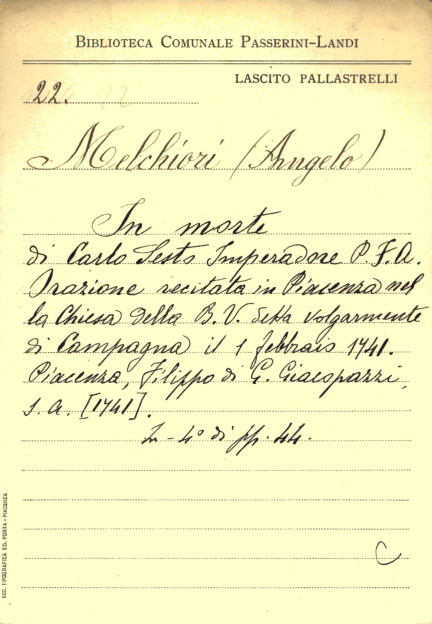 BIBLIOTECA COMUNALE PASSERINI-LANDI
LASCITO PALLASTRELLI
22.
Melchiori (Angelo)
In morte
di Carlo Sesto Imperadore P. F. A.
Orazione recitata in Piacenza nel
la Chiesa della B. V. detta volgarmente
di Campagna il 1 febbraio 1741.
Piacenza, Filippo di G. Giacopazzi,
s. a. [1741].
In-4° di pp. 44.
C
SOC. TIPOGRAFICA ED. PORTA - PIACENZA